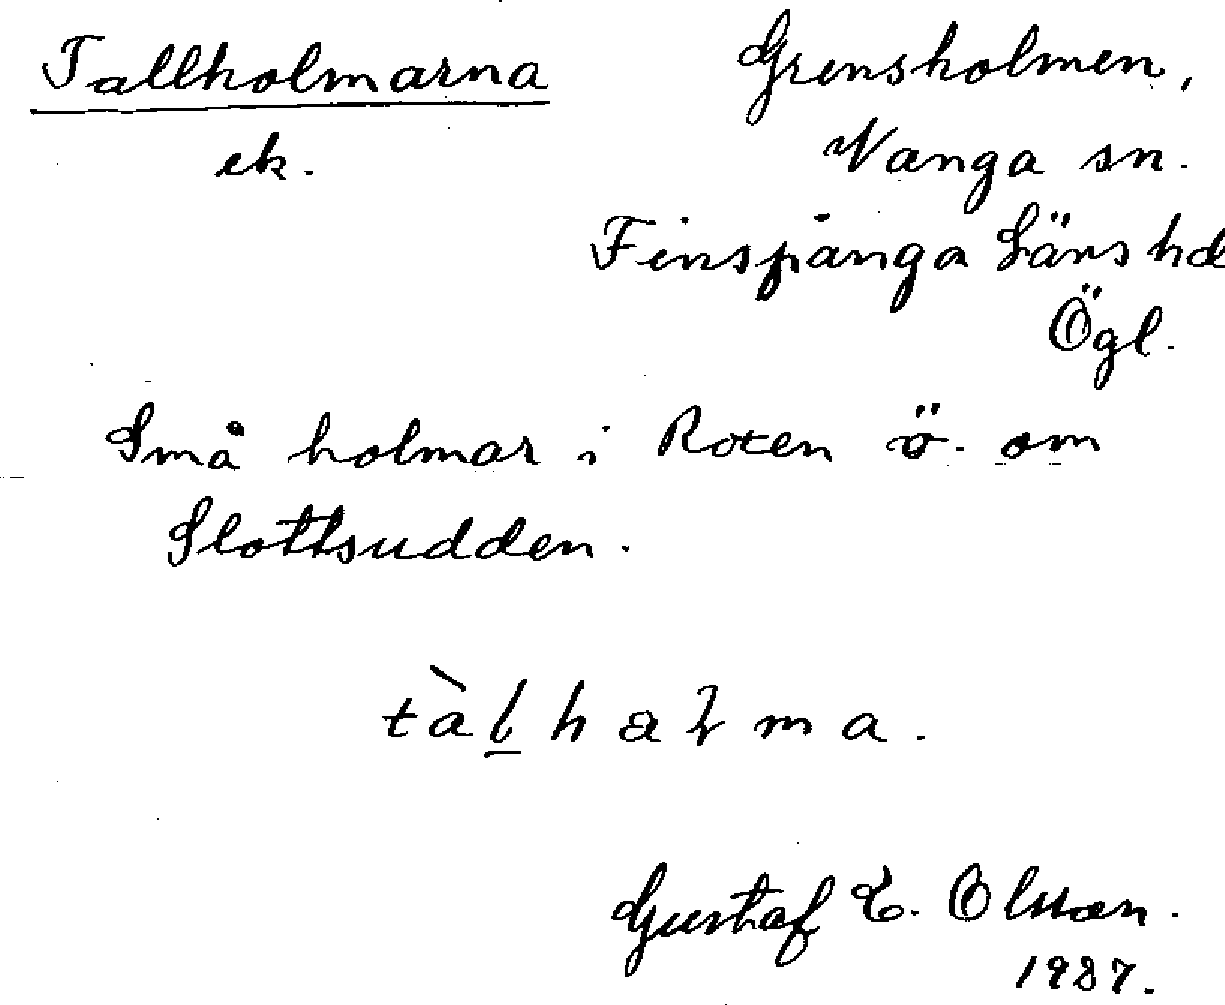 Tallholmarna
ek.
Grensholmen,
Vånga sn.
Finspånga Läns hd
Ögl.
Små holmar i Roxen ö. om
Slottsudden.
tàlhaƚma.
Gustaf E. Olsson.
1937.